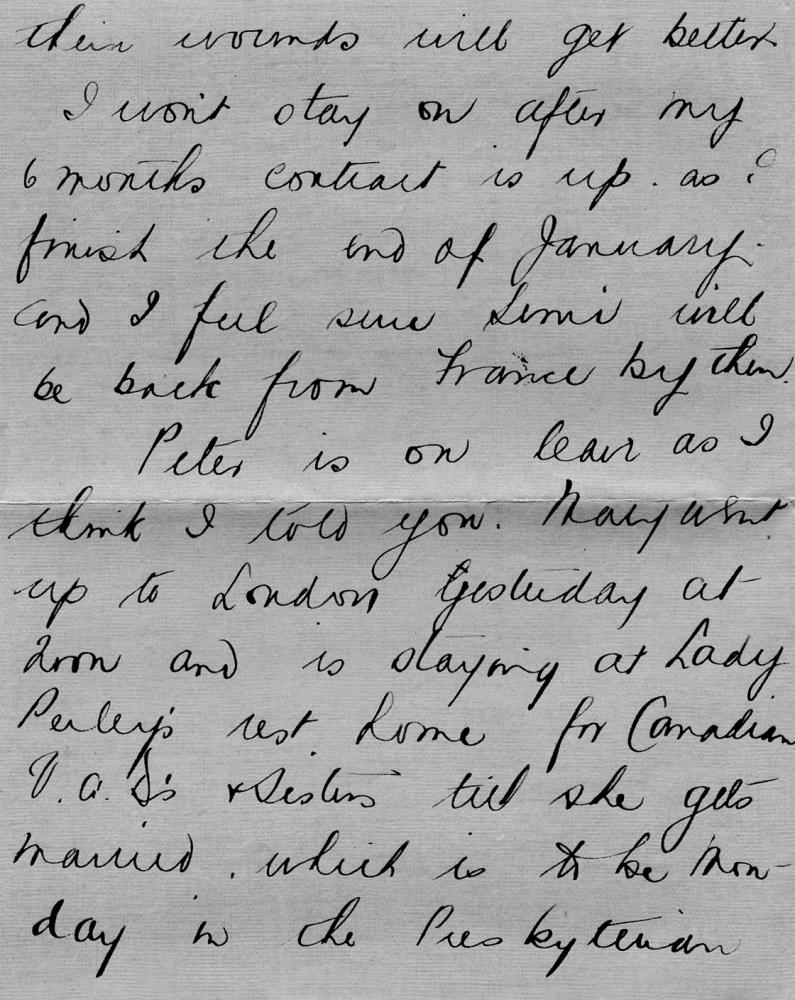 their wounds will get better
I won't stay on after my
6 months contract is up. as I
finish the end of January.
and I feel sure will
be back from France by then.
Peter is on leave as I
think I told you. Mary went
up to London Yesterday at
noon and is staying at Lady
Perley's rest home for Canadian
V.A.D's & Sisters till she gets
married. which is to be Mon-
day in the Presbyterian